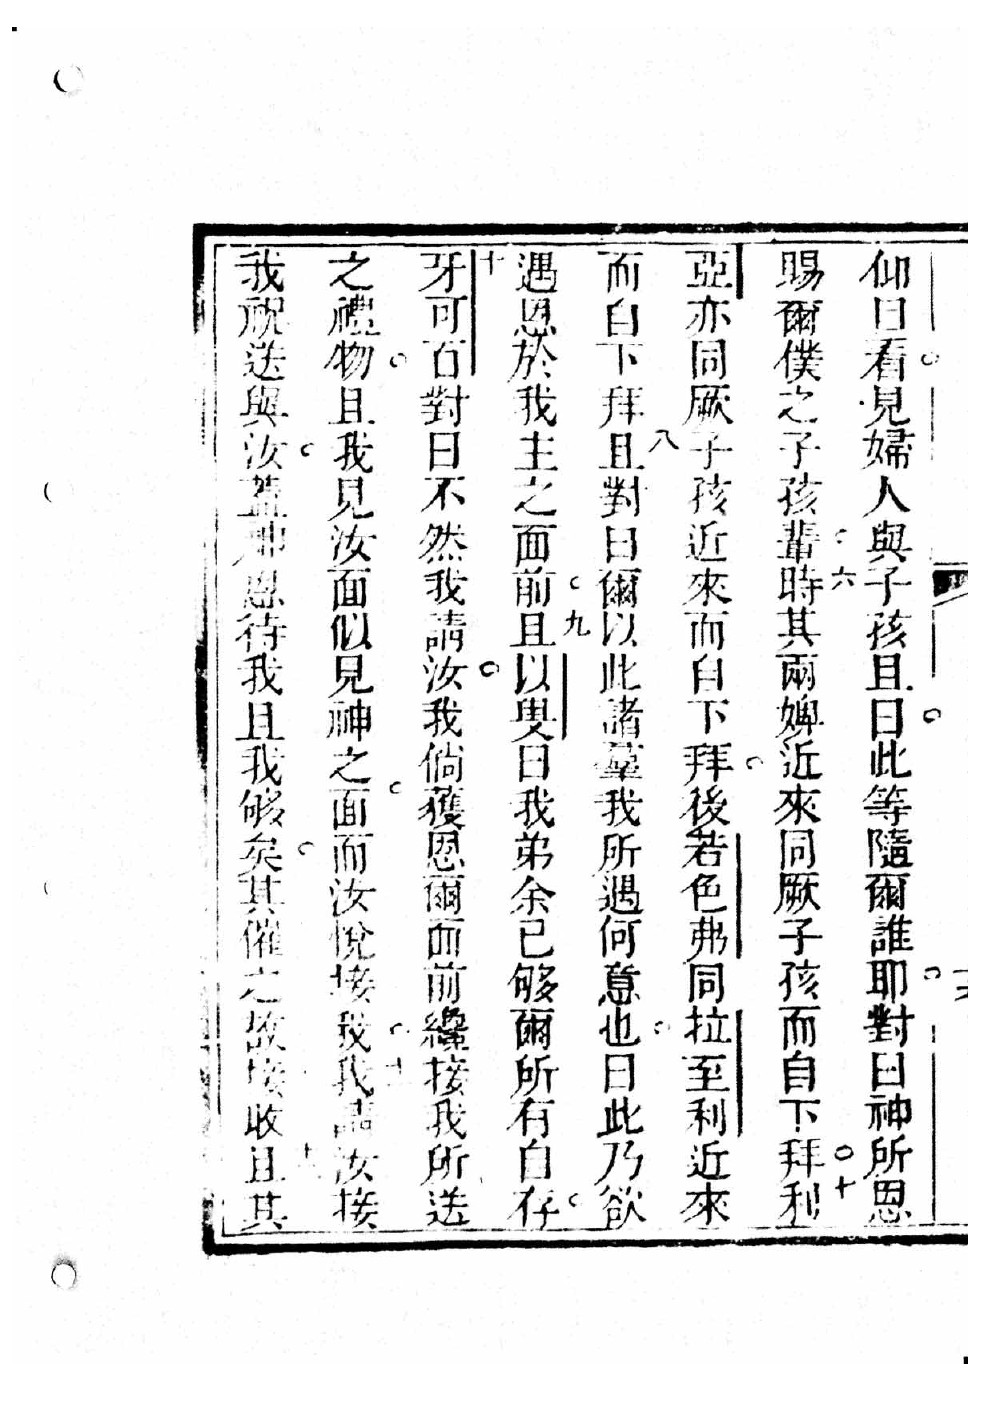 仰目看見婦人與子孩且曰此等隨爾誰耶對曰神所恩
賜爾僕之子孩輩六時其兩婢近來同厥子孩而自下拜七利
亞亦同厥子孩近來而自下拜後若色弗同拉至利近來
而自下拜八且對曰爾以此諸羣我所遇何意也曰此乃欲
遇恩於我主之面前九且以叟曰我弟余已够爾所有自存
十牙可百對曰不然我請汝我倘獲恩爾面前纔接我所送
之禮物且我見汝面似見神之面而汝悅接我十一我請汝接
我祝送與汝蓋神恩待我且我够矣其催之故接收十二且其